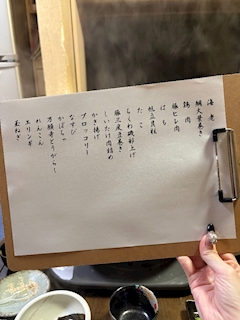 海老
鯛大葉巻き
鶏肉
豚ヒレ肉
はも
帆立貝柱
たこ
ちくわ磯部上げ
豚三度豆巻き
しいたけ肉詰め
かき揚げ
ブロッコリー
なすび
かぼちゃ
万願寺とうがらし
れんこん
エリンギ
玉ねぎ